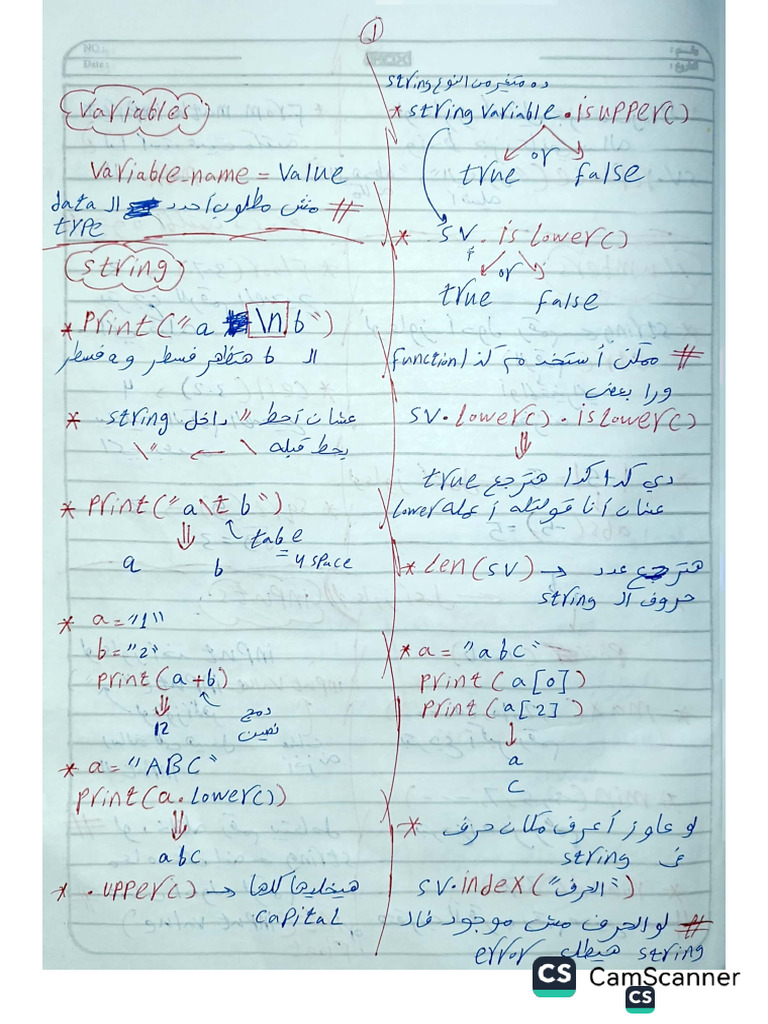 1
Variables
Variable_name = Value
# مش مطلوب احدد الـ data
type
string
* Print("a \n b")
الـ b هتظهر فسطر و a فسطر
* عشان احط " داخل string
يحط قبله \ ← "\
* Print("a\t b")
table
= 4 space
a b
* a = "1"
b = "2"
print(a+b)
12
دمج
نصين
* a = "ABC"
print(a.lower())
abc
* .upper() → هيخليها كلها
capital
ده متغير من النوع string
* string variable.isupper()
true or false
* SV.islower()
true or false
# ممكن أستخدم كذا function
ورا بعض
SV.lower().islower()
دي كدا كدا هترجع true
عشان أنا قولتله أعمله lower
* Len(SV) → هترجع عدد
حروف الـ string
* a = "abc"
print(a[0])
print(a[2])
a
c
* لو عاوز أعرف مكان حرف
فى string
SV.index("الحرف")
# لو الحرف مش موجود فالـ
string هيطلع error
CS CamScanner
CS